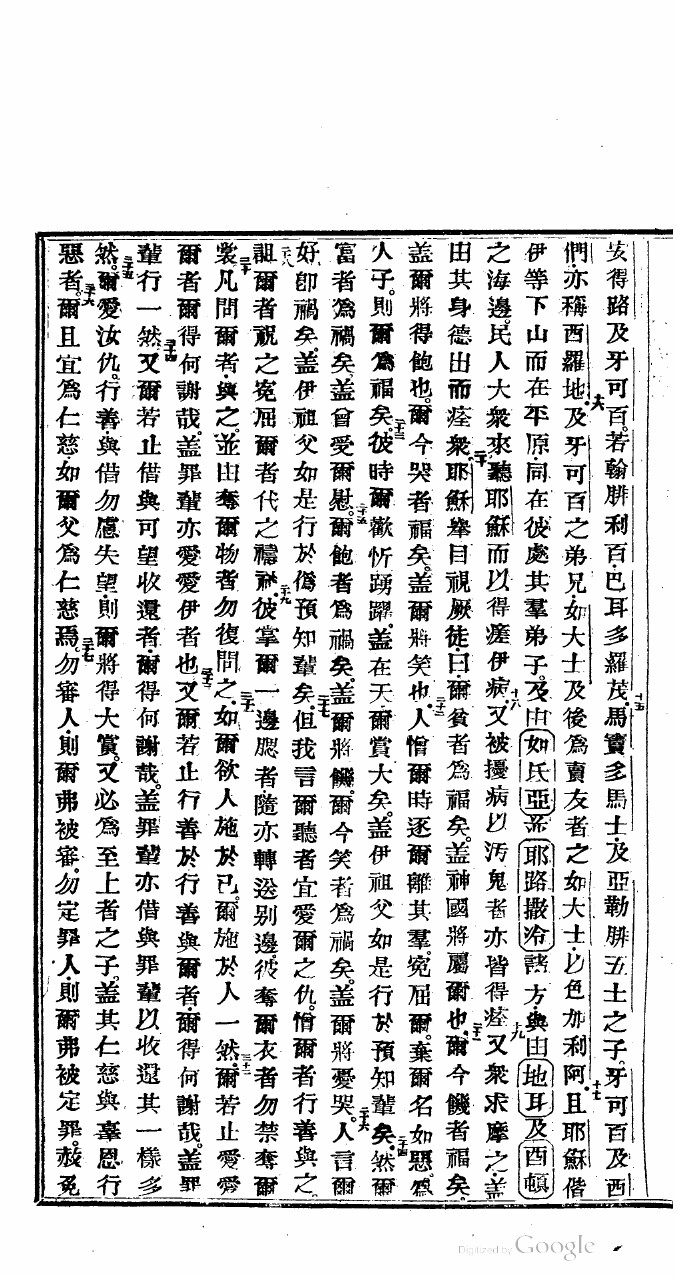 安得路及牙可百。若翰胼利百·巴耳多羅茂·十五馬竇多馬士·及亞勒胼五士之子。牙可百及西
們·亦稱西羅地·十六及牙可百之弟兄如大士及後為賣友者之如大士以色加利阿·十七且耶穌偕
伊等下山而在平原·同在彼處其羣弟子。及由如氐亞·帝耶路撒冷諸方·與由地耳及西頓
之海邊。民人大衆來聽耶穌而以得瘥伊病·十八又被擾病以汚鬼者亦皆得痊·十九又衆求摩之·盖
由其身德出而痊衆·二十耶穌舉目視厥徒·曰·爾貧者為福矣·盖神國將屬爾也·二十一爾今饑者福矣·
盖爾將得飽也。爾今哭者福矣·盖爾將笑也·二十二人憎爾時逐爾離其羣·寃屈爾。棄爾名如惡·為
人子。則爾為福矣·二十三彼時爾歡忻踴躍。盖在天爾賞大矣。盖伊祖父如是行於預知輩矣·二十四然爾
富者為禍矣·盖曾愛爾慰。二十五爾飽者為禍矣·盖爾將饑。爾今笑者為禍矣。盖爾將愛哭。二十六人言爾
好卽禍矣·盖伊祖父如是行於偽預知輩矣·二十七但我言爾聽者宜愛爾之仇。憎爾者行善與之。
二十八詛爾者祝之寃屈爾者代之禱祈·二十九彼掌爾一邊腮者·隨亦轉送别邊·彼奪爾衣者勿禁奪爾
裳·三十凡問爾者·與之。並由奪爾物者勿復問之·三十一如爾欲人施於已·爾施於人一然·三十二爾若止愛愛
爾者爾得何謝哉。盖罪輩亦愛愛伊者也·三十三又爾若止行善於行善與爾者·爾得何謝哉·盖罪
輩行一然·三十四又爾若止借與可望收還者·爾得何謝哉·盖罪輩亦借與罪輩以收還其一樣多
然·三十五爾愛汝仇·行善·與借勿慮失望·則爾將得大賞。又必為至上者之子·盖其仁慈與辜恩行
惡者·三十六爾且宜為仁慈·如爾父為仁慈焉·三十七勿審人·則爾弗被審·勿定罪人·則爾弗被定罪·赦免
Digitized by Google